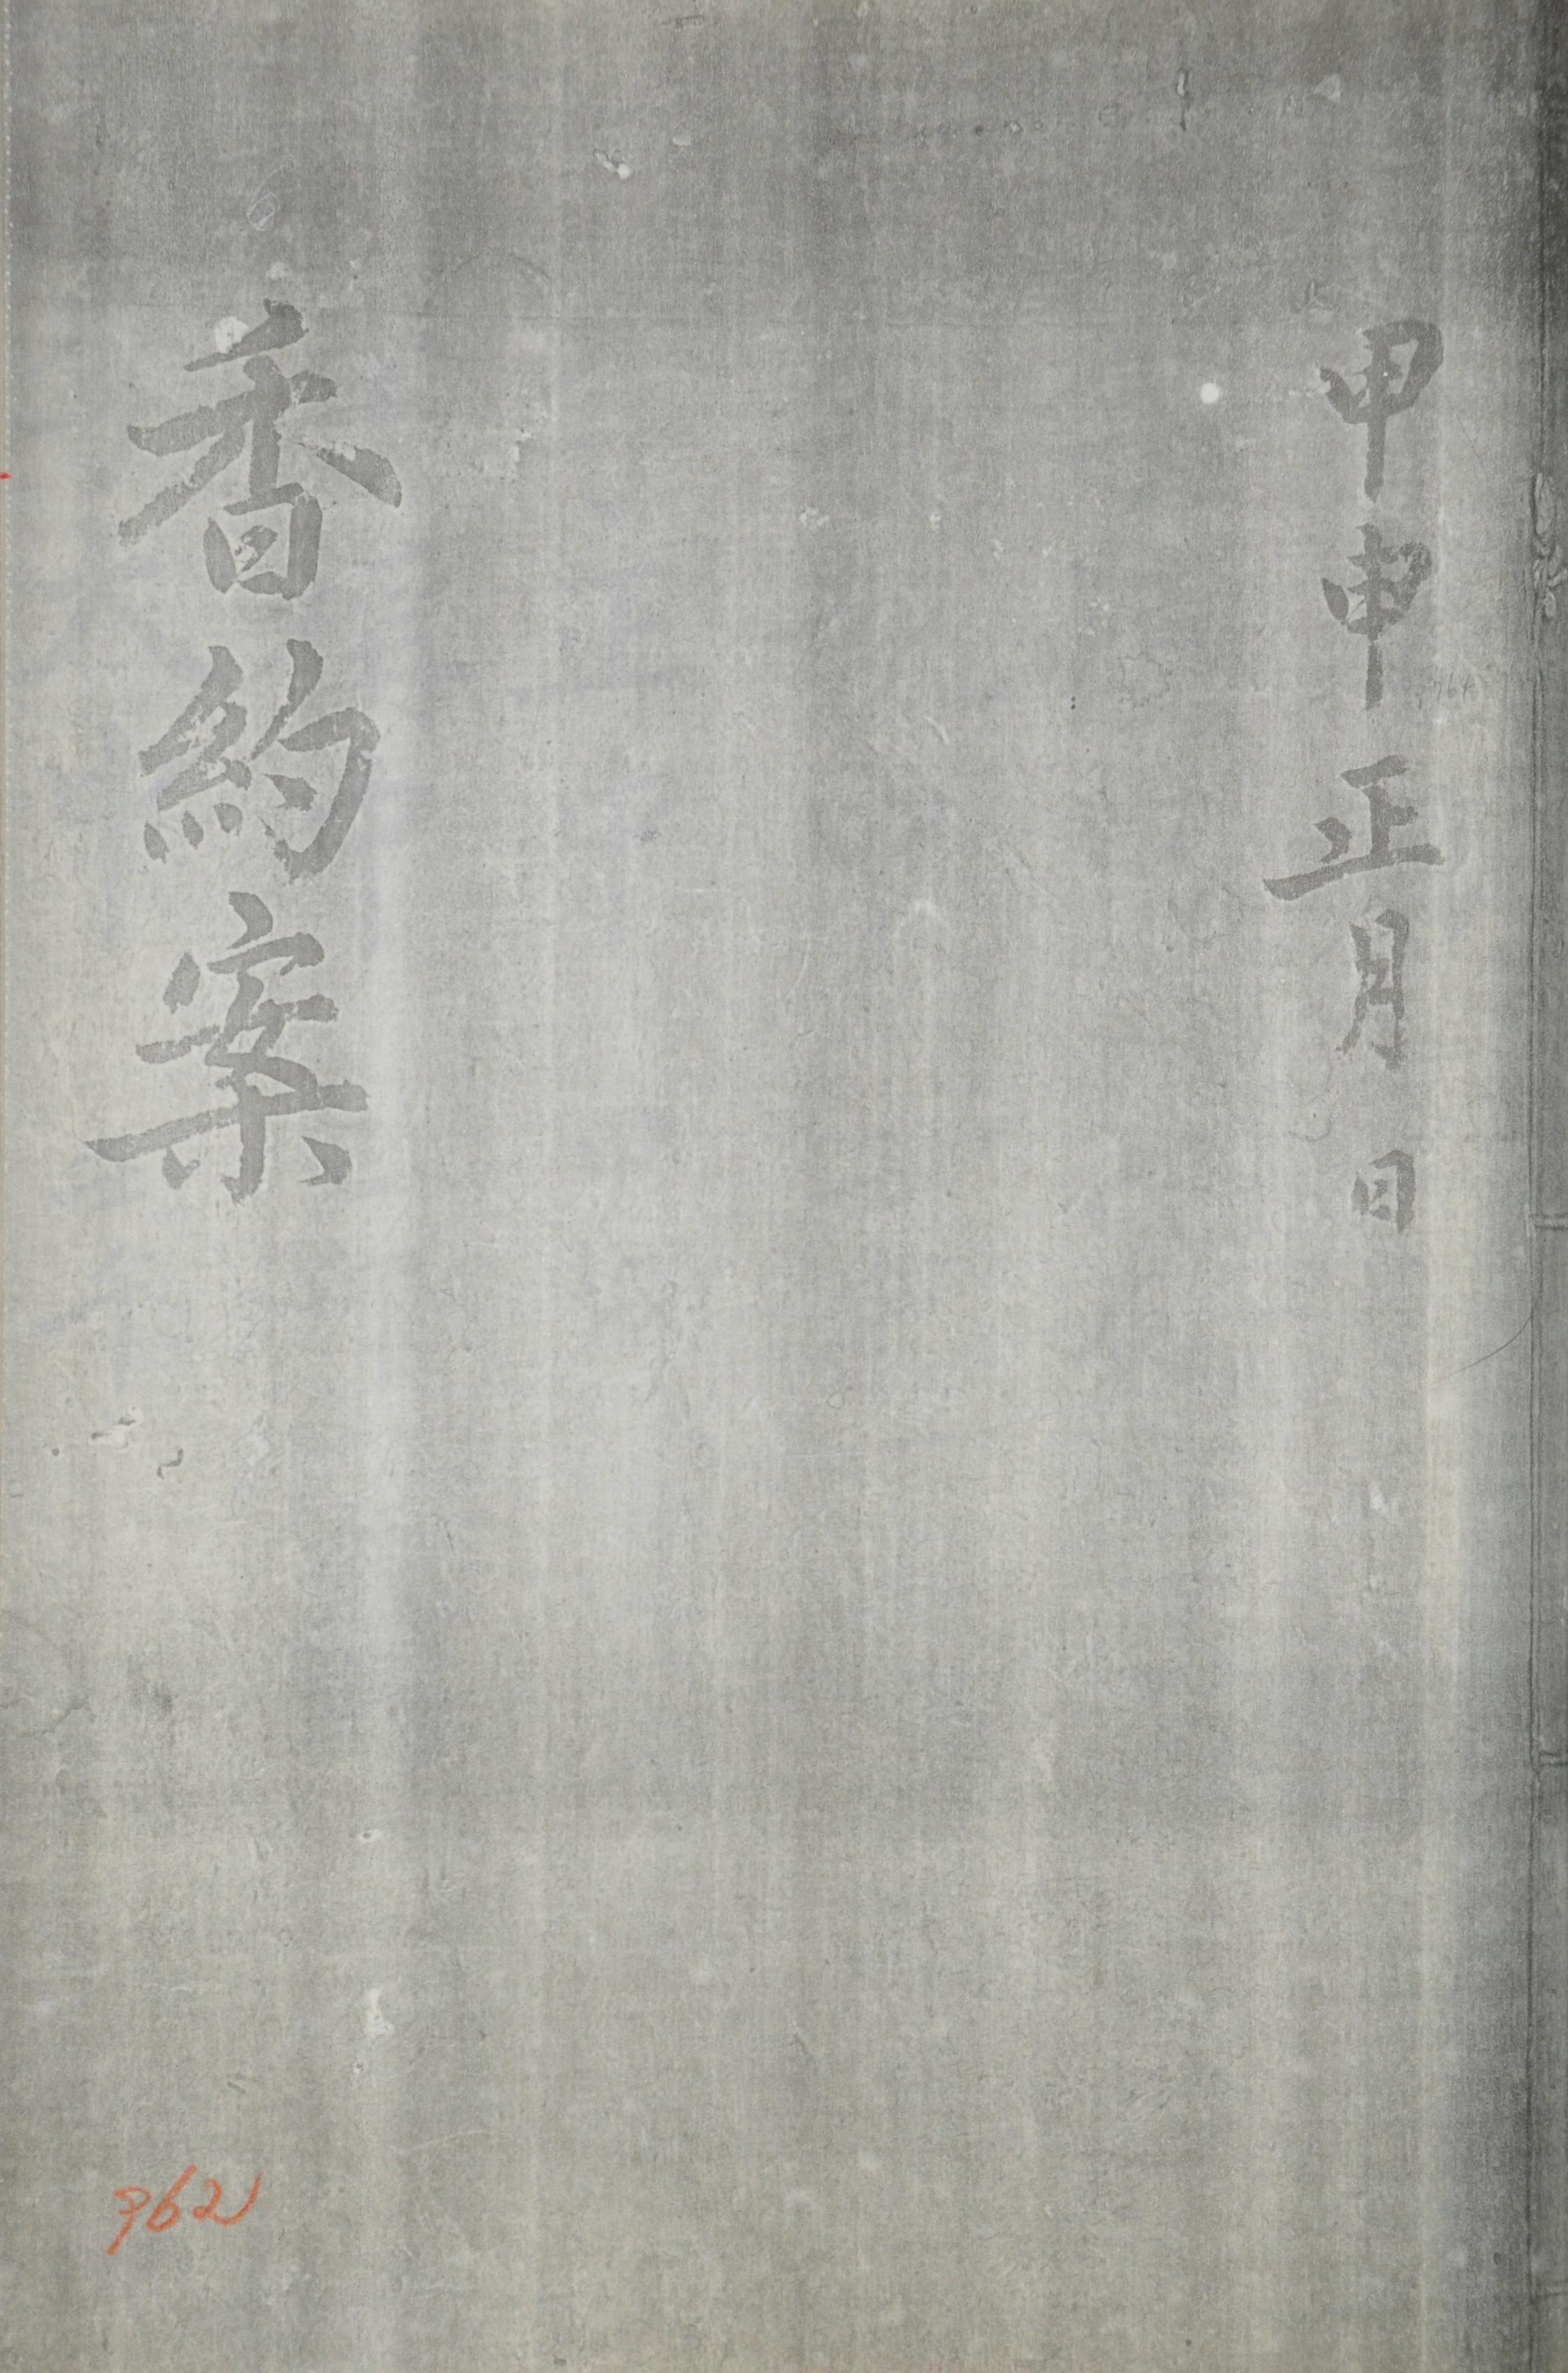 甲申正月日
香約案
762